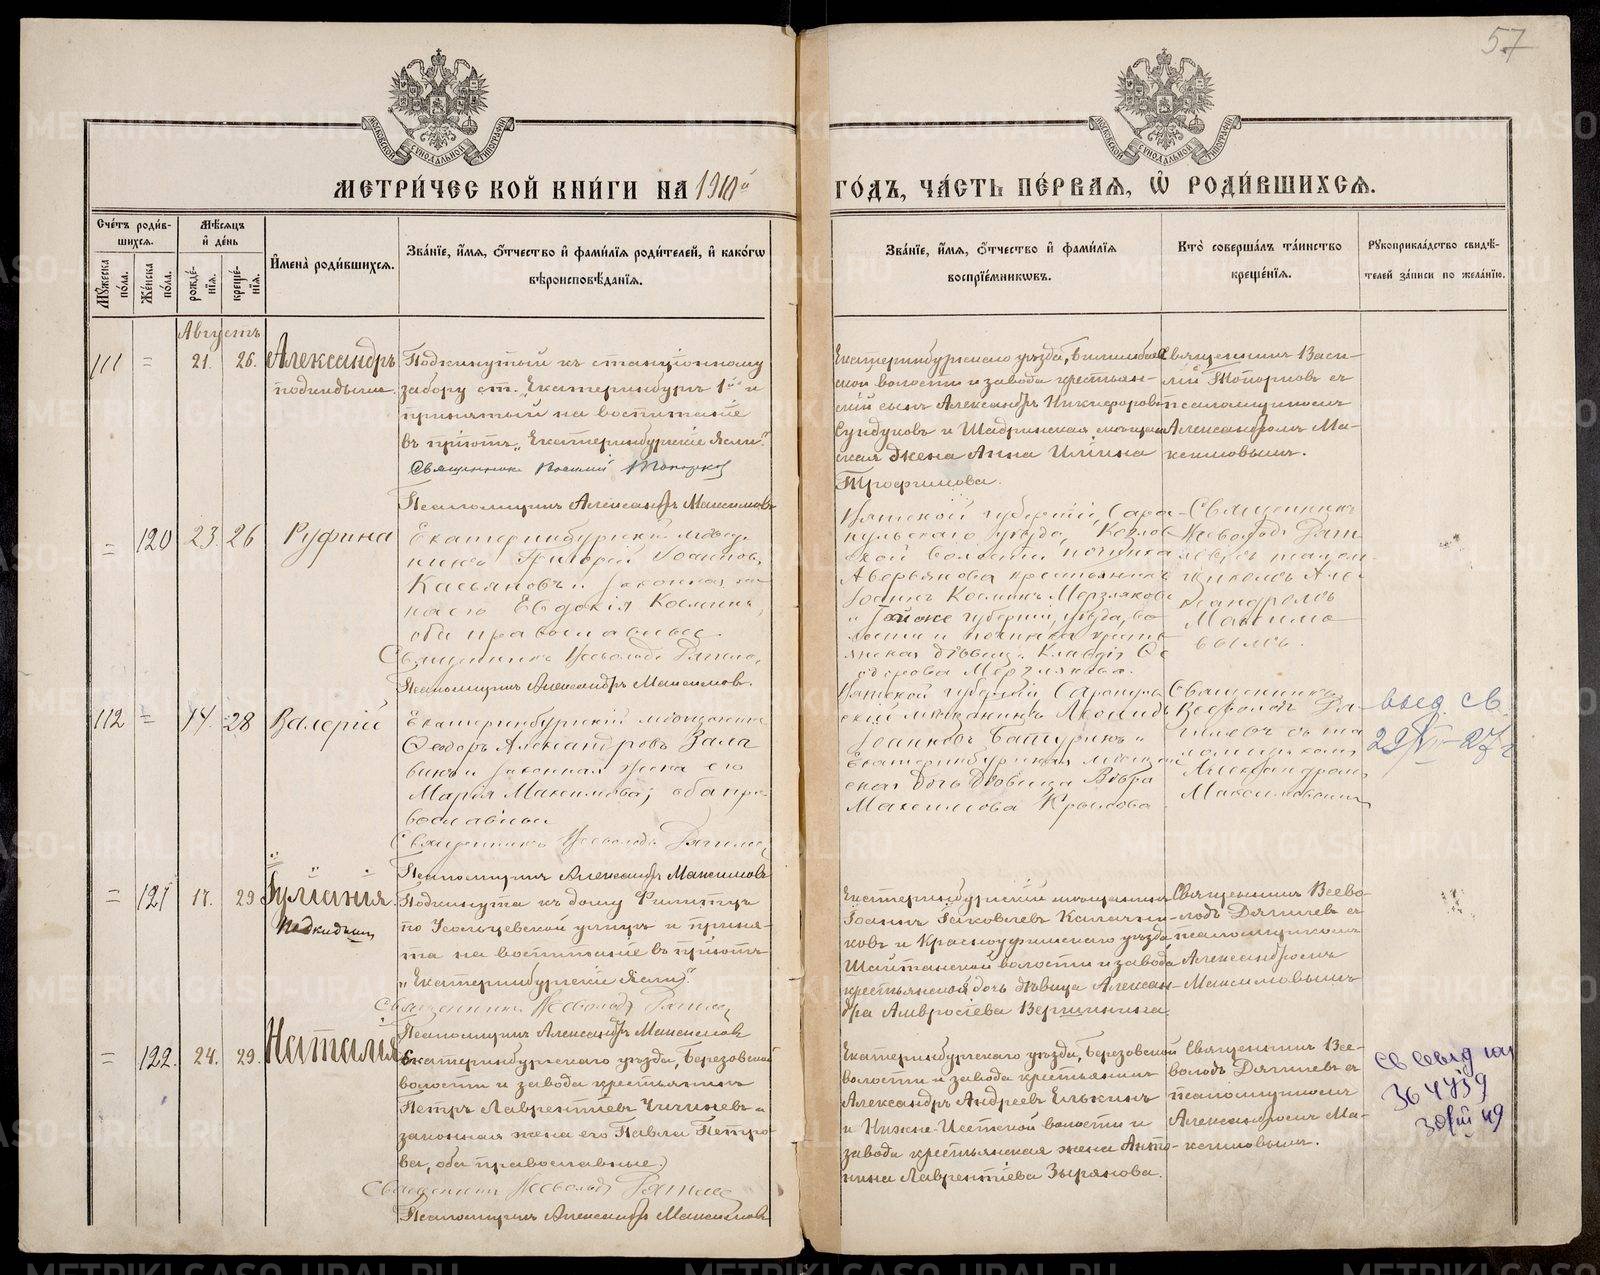 57
МОСКОВСКОЙ СѴНОДАЛЬНОЙ ТИПОГРАФІИ
МОСКОВСКОЙ СѴНОДАЛЬНОЙ ТИПОГРАФІИ
МЕТРИ́ЧЕСКОЙ КНИ́ГИ НА 1910й ГО́ДЪ, ЧА́СТЬ ПЕ́РВАѦ, Ѽ РОДИ́ВШИХСѦ.
Сче́тъ роди́в-
шихсѧ.
Мꙋ́жеска по́ла.
Же́нска по́ла.
Мѣ́сѧцъ
и҆ де́нь
рожде́-
нїѧ.
креще́-
нїѧ.
И҆мена̀ роди́вшихсѧ.
Зва́нїе, и҆́мѧ, ѻ҆́тчество и҆ фами́лїѧ роди́телей, и҆ како́гѡ
вѣроисповѣ́данїѧ.
Зва́нїе, и҆́мѧ, ѻ҆́тчество и҆ фами́лїѧ
воспрїе́мникѡвъ.
Кто̀ соверша́лъ та́инство
креще́нїѧ.
Рꙋкоприкла́дство свидѣ́-
телей за́писи по жела́нїю.
Августъ
111 = 21. 26. Александръ
подкидышъ.
Подкинутый къ станціонному
забору ст. „Екатеринбургъ 1й" и
принятый на воспитаніе
въ пріютъ „Екатеринбургскіе Ясли".
Священникъ Василій Топорковъ
Псаломщикъ Александръ Максимовъ
Екатеринбургскаго уѣзда, Билимбаев
ской волости и завода крестьян-
скій сынъ Александръ Никифоровъ
Сундуковъ и Шадринская мѣщан
ская жена Анна Иліина
Трофимова.
Священникъ Васи-
лій Топорковъ съ
псаломщикомъ
Александромъ Ма-
ксимовымъ.
= 120 23. 26 Руфина
Екатеринбургскій мѣщан
нинъ Григорій Іоанновъ
Касьяновъ и законная же
на его Евдокія Космина,
оба православные.
Священникъ Всеволодъ
Псаломщикъ Александръ Максимовъ.
Вятской губерніи, Сара-
пульскаго уѣзда, Козлов
ской волости, починка
Аверьянова крестьянинъ
Іоаннъ Косминъ Мерзляковъ
и Той же губерніи, уѣзда, во
лости и починка кресть
янская дѣвица Клавдія Ѳе
одорова Мерзлякова.
Священникъ
Всеволодъ
псалом
щикомъ Але-
ксандромъ
Максимо
вымъ.
112 = 14. 28 Валерій
Екатеринбургскій мѣщанинъ
Ѳеодоръ Александровъ
и законная жена его
Марія Максимова; оба пра-
вославные
Священникъ Всеволодъ
Псаломщикъ Александръ Максимовъ
Вятской губерніи Сарапуль
скій мѣщанинъ Леонидъ
Іоанновъ Батуринъ и
Екатеринбургская мѣщан
ская дочь дѣвица Вѣра
Максимова Крылова.
Священникъ
Всеволодъ
съ пса
ломщикомъ
Александромъ
Максимовымъ
выд. св.
= 121 17. 29 Іуліанія
Подкидышъ
Подкинута къ дому
по Усольцевской улицѣ и приня-
та на воспитаніе въ пріютъ
„Екатеринбургскіе Ясли".
Священникъ Всеволодъ
Псаломщикъ Александръ Максимовъ
Екатеринбургскій мѣщанинъ
Іоаннъ Іаковлевъ Калачни-
ковъ и Красноуфимскаго уѣзда
Шайтанской волости и завода
крестьянская дочь дѣвица Алексан-
дра Амвросіева Вершинина.
Священникъ Всево-
лодъ Дягилевъ съ
псаломщикомъ
Александромъ
Максимовымъ
= 122. 24. 29. Наталія
Екатеринбургскаго уѣзда, Березовской
волости и завода крестьянинъ
Петръ Лаврентіевъ Чичиневъ и
законная жена его Павла Петро-
ва, оба православные.
Священникъ Всеволодъ
Псаломщикъ Александръ Максимовъ
Екатеринбургскаго уѣзда, Березовской
волости и завода крестьянинъ
Александръ Андреевъ Елькинъ
и Нижне-Исетской волости и
завода крестьянская жена Анто-
нина Лаврентіева Зырянова.
Священникъ Все-
володъ Дягилевъ съ
псаломщикомъ
Александромъ Ма-
ксимовымъ.